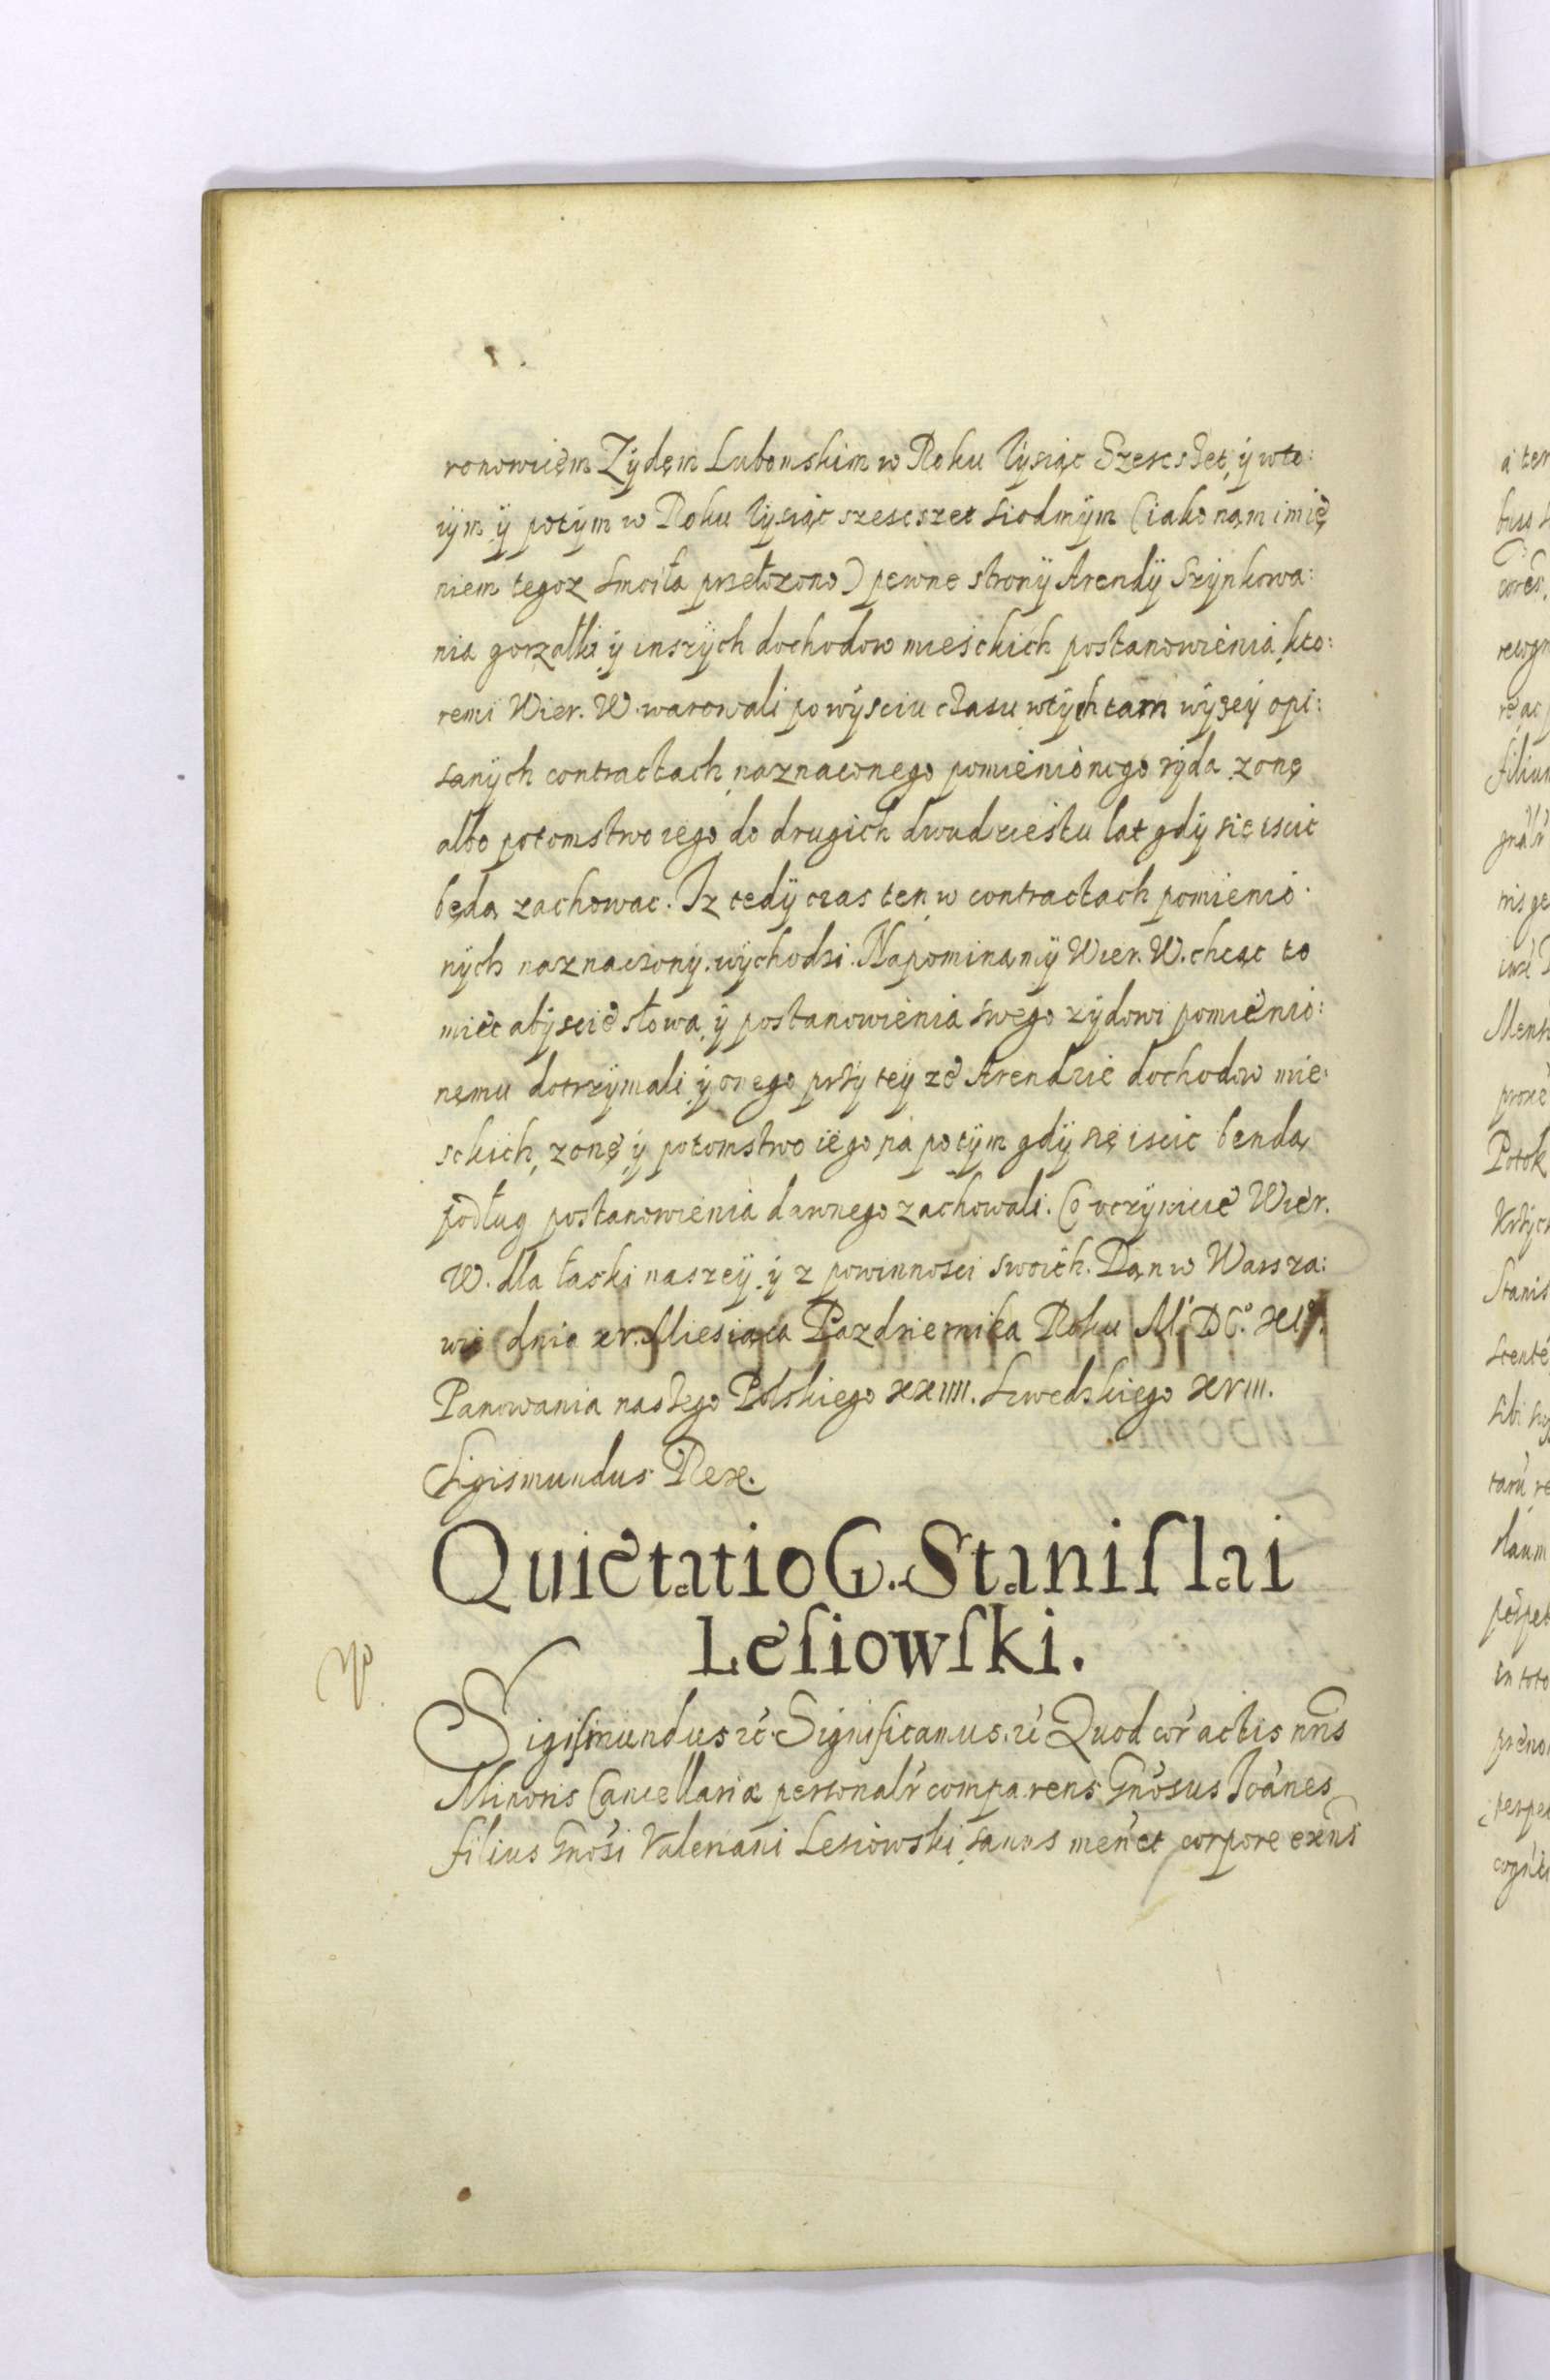 ronowiem Zÿdęm Lubomskim w Roku Tÿsiąc Szescset ÿ wto:
rÿm ÿ potÿm w Roku tÿsiąc szescszet siodmÿm (iako nąm imię
niem tegoz Smoiła przełozono) pewne stronÿ Arendÿ Szÿnkowa:
nia gorzałki ÿ inszÿch dochodow mieśckich postanowienia kto:
remi Wier. W. warowali po wÿsciu czasu w tÿch tam wÿzeÿ opi:
sanÿch contractach naznaconego pomienionego zÿda zonę
albo potomstwo iego do drugich dwudziestu lat gdÿ się iscic
będą zachowac. Iz tedÿ czas ten w contractach pomienio:
nÿch naznaczonÿ wÿchodzi. Napominamÿ Wier. W. chcąc to
miec abÿscie słowa ÿ postanowienia swego zÿdowi pomienio:
nemu dotrzÿmali ÿ onego przÿ teÿ ze Arendzie dochodow mie:
sckich, zonę ÿ potomstwo iego na potÿm gdÿ się iscic bendą
podług postanowienia dawnego zachowali. Co vczÿnicie Wier.
W. dla łaski naszeÿ ÿ z powinnosci swoich. Dan w Warsza:
wie dnia xv. Miesiąca Pazdziernika Roku M.° DC.° XI°.
Panowania naszego Polskiego XXIIII. Szwedzkiego XVIII.
Sigismundus Rex.
Quietatio G. Staniſlai
Leſiowſki.
Sigiſmundus ꝛc. Significamus. ꝛc Quod cor̃ actis nr̃is
Minoris Cancellariæ personalr̃ comparens Gnõsus Joãnes
filius Gnõsi Valeriani Lesiowski sanus men̄ et corpore exñs